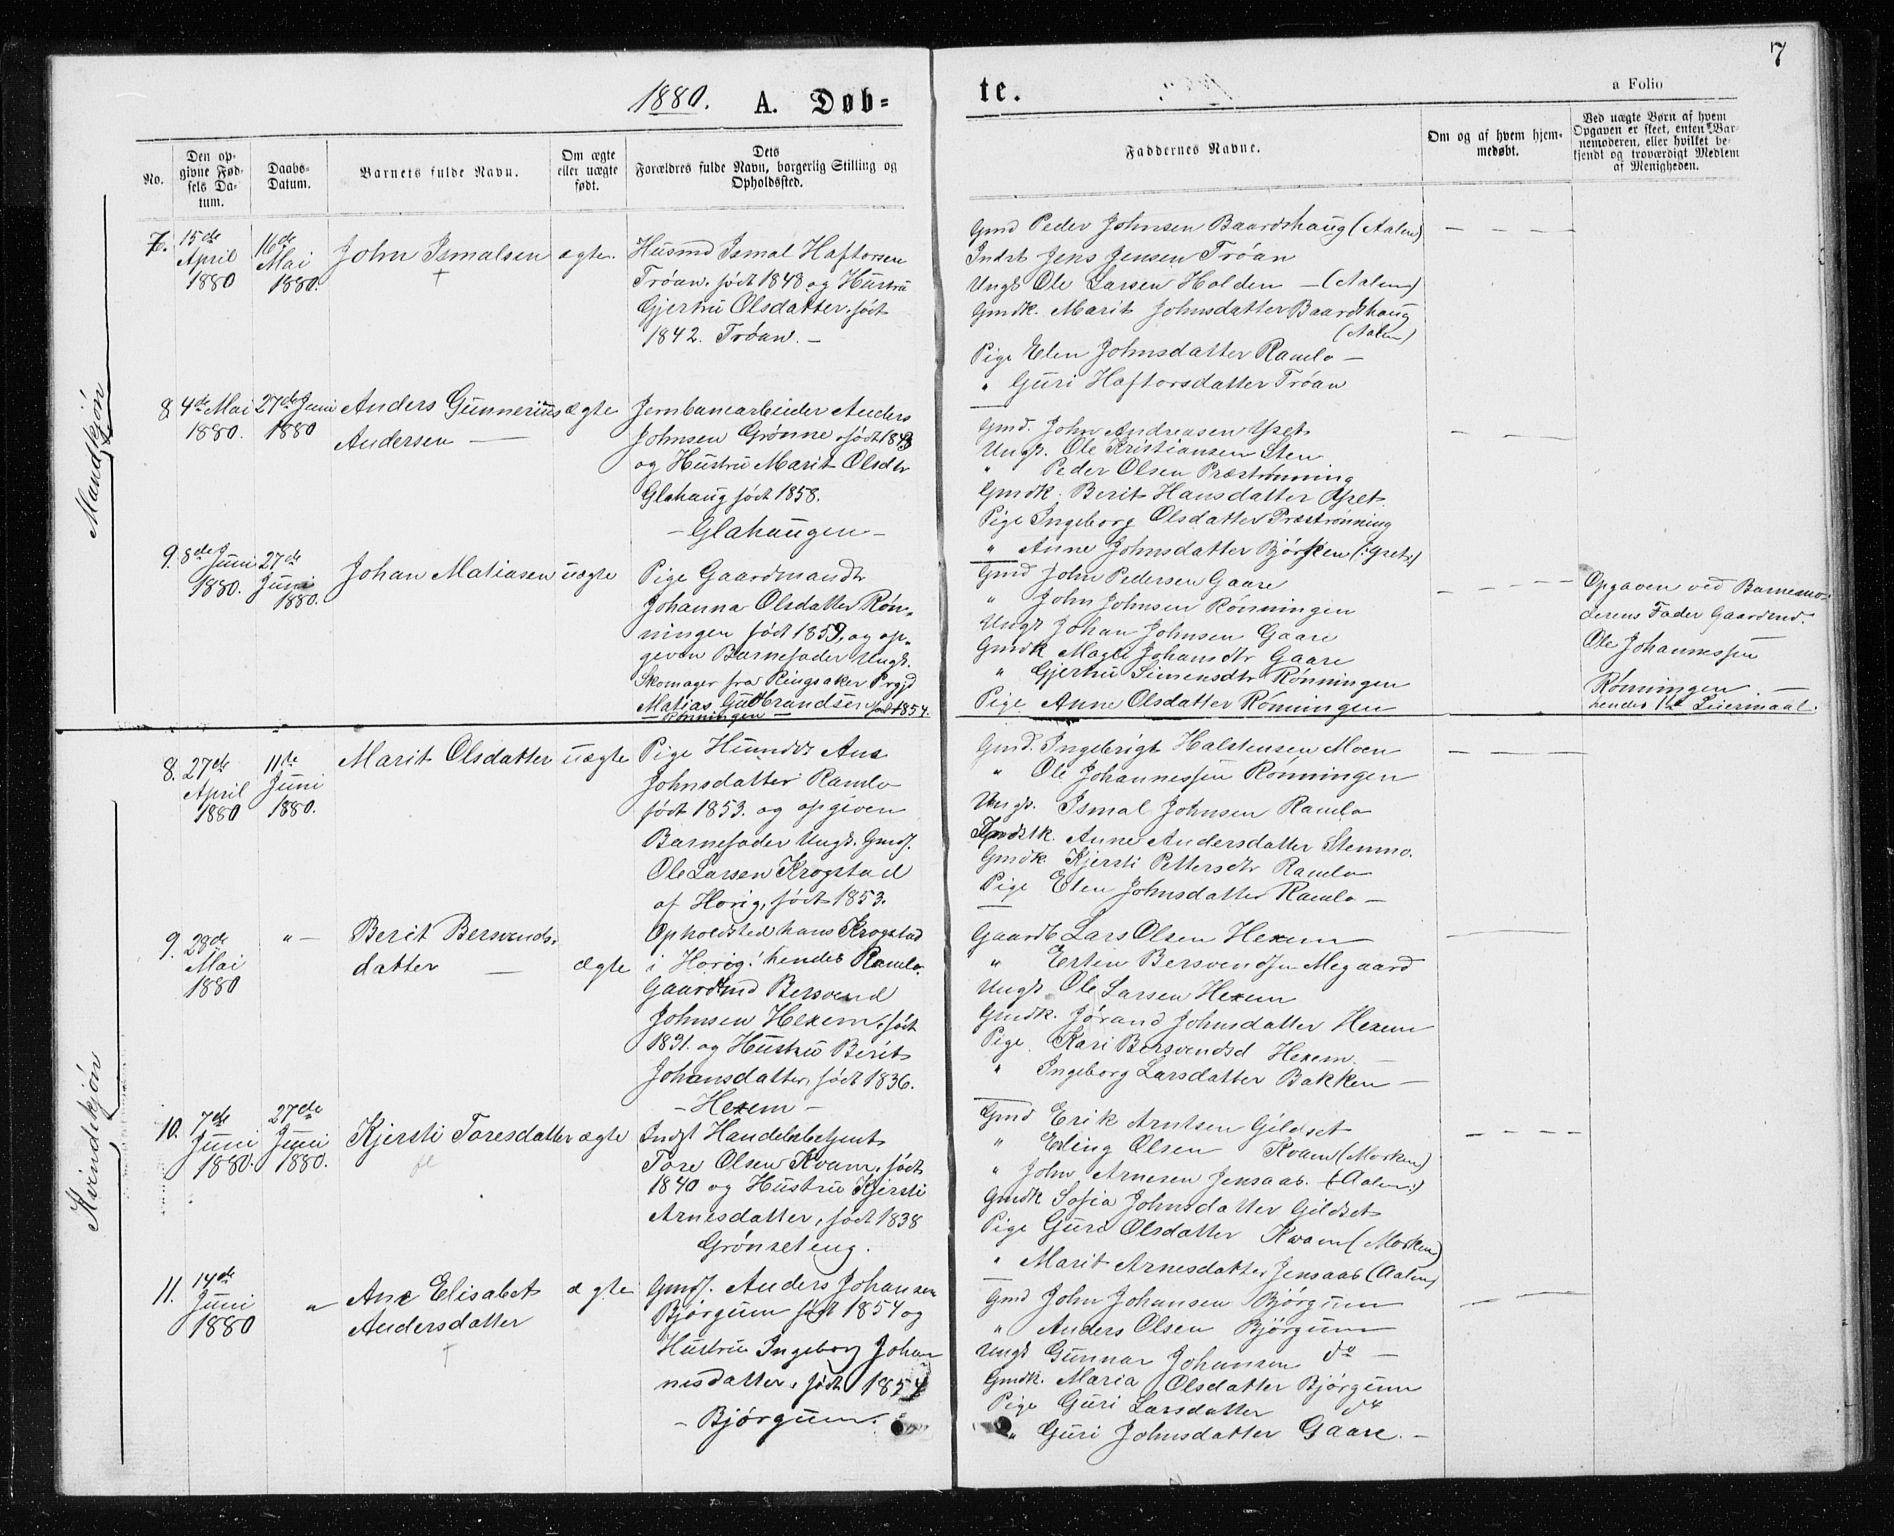 7
1880. A. Døb=
te.
a Folio
No.
Den op-
givne Fød-
sels Da-
tum.
Daabs-
Datum.
Barnets fulde Navn.
Om ægte
eller uægte
født.
Dets
Forældres fulde Navn, borgerlig Stilling og
Opholdssted.
Faddernes Navne.
Om og af hvem hjem-
medøbt.
Ved uægte Børn af hvem
Opgaven er skeet, enten Bar-
nemoderen, eller hvilket be-
kjendt og troværdigt Medlem
af Menigheden.
Mandkjøn
7.
15de
April
1880
16de
Mai
1880.
John Ismalsen
†
ægte.
Husmd Ismal Haftorsen
Trøan, født 1848 og Hustru
Gjertru Olsdatter, født
1842. Trøan. —
Gmd Peder Johnsen Baardshaug (Aalen)
Indst Jens Jensen Trøan
Ungk Ole Larsen Holden — (Aalen)
Gmdk. Marit Johnsdatter Baardshaug
(Aalen)
Pige Elen Johnsdatter Ramlo —
" Guri Haftorsdatter Trøan
8
4de Mai
1880.
27de Juni
1880
Anders Gunnerius
Andersen —
ægte
Jernbanearbeider Anders
Johnsen Grønne, født 1843
og Hustru Marit Olsdtr
Glahaug født 1858.
— Glahaugen —
Gmd. John Andreasen Yset
Ungk. Ole Kristiansen Sten
" Peder Olsen Præstrønning
Gmdk. Berit Hansdatter Yset
Pige Ingeborg Olsdatter Præstrønning
" Anne Johnsdatter Bjørken (:Yset:)
9.
8de Juni
1880.
27de
Juni
1880.
Johan Matiasen
uægte
Pige Gaardmandtr
Johanna Olsdatter Røn-
ningen født 1859, og op-
given Barnefader Ungk.
Skomager fra Ringsaker Prgjd
Matias Gulbrandsen født 1854.
— Rønningen —
Gmd John Pedersen Gaare
" John Johnsen Rønningen
Ungk Johan Johnsen Gaare
Gmdk Magli Johansdtr Gaare
" Gjertru Simensdtr Rønningen
Pige Anne Olsdatter Rønningen
Opgaven ved Barnemo-
derens Fader Gaardmd.
Ole Johannessen
Rønningen. —
hendes 1ste Leiermaal.
Kvindekjøn
8.
27de
April
1880
11de
Juni
1880.
Marit Olsdatter
uægte
Pige Ane
Johnsdatter Ramlo
født 1853. og opgiven
Barnefader Ungk. Gmds.
Ole Larsen Krogstad
af Horig, født 1853.
Opholdsted hans Krogstad
i Horig! hendes Ramlo.
Gmd. Ingebrigt Halstensen Moen
" Ole Johannessen Rønningen
Ungk. Ismal Johnsen Ramlo
Indstk. Anne Andersdatter Stenmo.
Gmdk. Kjersti Pettersdtr Ramlo
Pige Elen Johnsdatter Ramlo —
9.
28de
Mai
1880
" —
Berit Bersvends-
datter —
ægte
Gaardmd Bersvend
Johnsen Hexem, født
1831. og Hustru Berit
Johansdatter, født 1836.
— Hexem —
Gaardb Lars Olsen Hexem
" Esten Bersvendsen Megaard
Ungk Ole Larsen Hexem
Gmdk. Jørand Johnsdatter Hexem
Pige Kari Bersvendsd Hexem. —
" Ingeborg Larsdatter Bakken —
10.
7de
Juni
1880.
27de
Juni
1880.
Kjersti Toresdatter
ægte
Indst Handelsbetjent
Tore Olsen Kvam, født
1840 og Hustru Kjersti
Arnesdatter, født 1838
Grønseteng.
Gmd Erik Arntsen Gildset
" Erling Olsen Kvam (Morken)
" John Arnesen Jensaas. (:Aalen:)
Gmdk Sofia Johnsdatter Gildset
Pige Guri Olsdatter Kvam (Morken)
" Marit Arnesdatter Jensaas (Aalen)
11.
14de
Juni
1880
"
Ane Elisabet
Andersdatter
†
ægte
Gmds. Anders Johansen
Bjørgum født 1854 og
Hustru Ingeborg Johan
nesdatter, født 1854
— Bjørgum.
Gmd John Johansen Bjørgum
" Anders Olsen Bjørgum
Ungk Gunnar Johansen do —
Gmdk. Maria Olsdatter Bjørgum
Pige Guri Larsdatter do
" Guri Johnsdatter Gaare. —